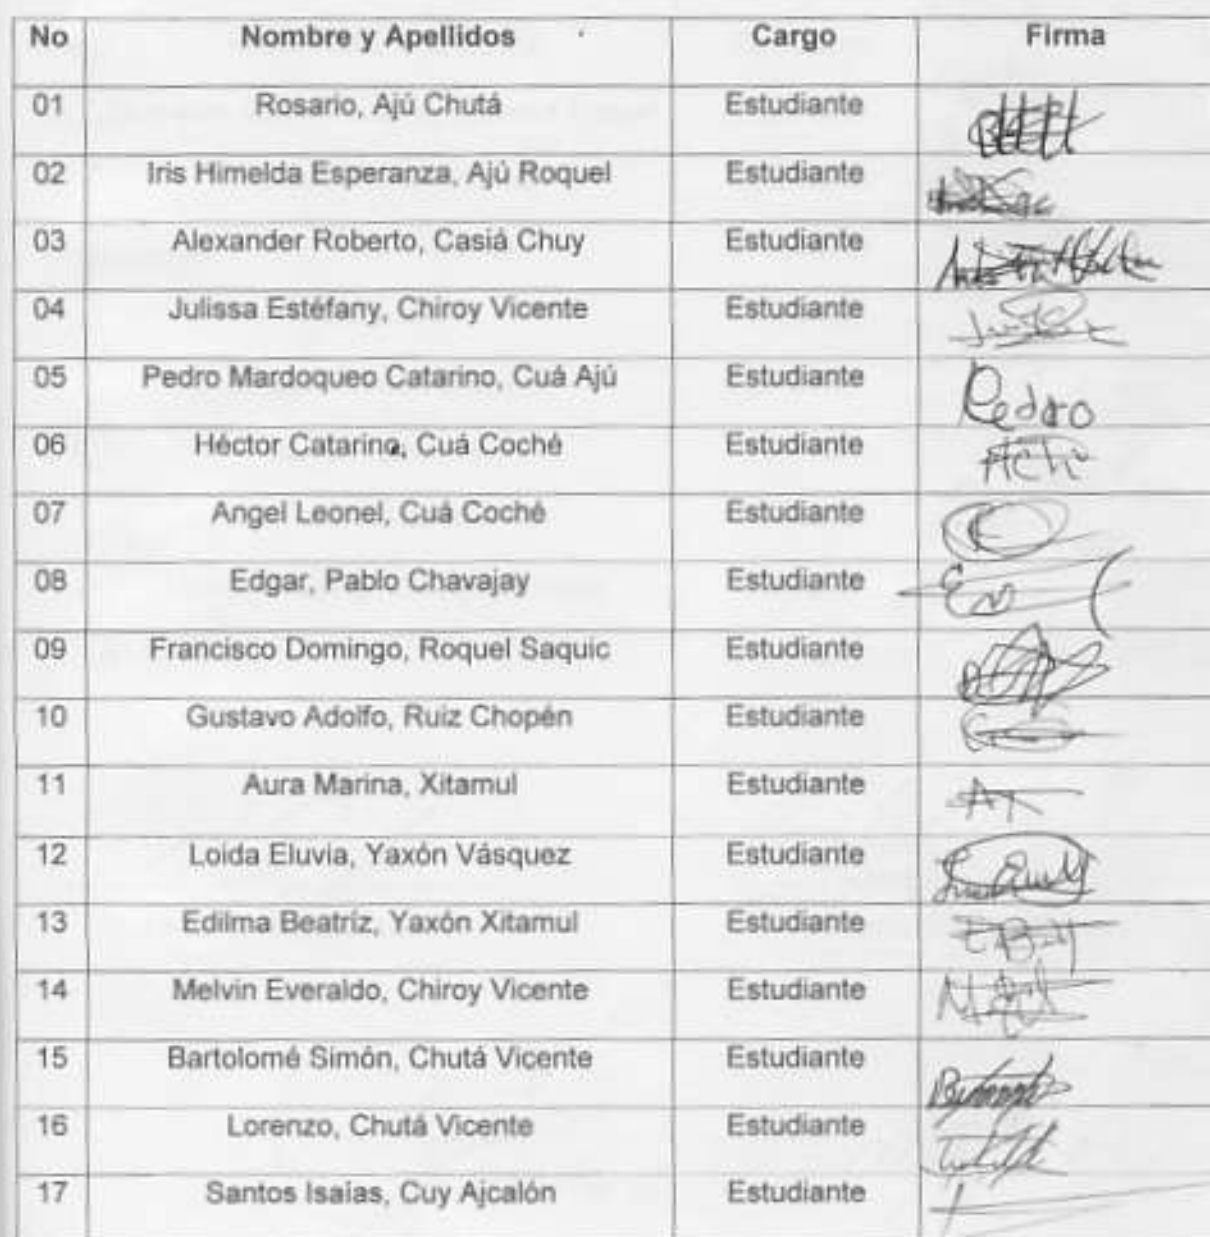 No Nombre y Apellidos Cargo Firma
01 Rosario, Ajú Chutá Estudiante
02 Iris Himelda Esperanza, Ajú Roquel Estudiante
03 Alexander Roberto, Casiá Chuy Estudiante
04 Julissa Estéfany, Chiroy Vicente Estudiante
05 Pedro Mardoqueo Catarino, Cuá Ajú Estudiante Pedro
06 Héctor Catarino, Cuá Coché Estudiante
07 Angel Leonel, Cuá Coché Estudiante
08 Edgar, Pablo Chavajay Estudiante
09 Francisco Domingo, Roquel Saquic Estudiante
10 Gustavo Adolfo, Ruiz Chopén Estudiante
11 Aura Marina, Xitamul Estudiante
12 Loida Eluvia, Yaxón Vásquez Estudiante
13 Edilma Beatríz, Yaxón Xitamul Estudiante
14 Melvin Everaldo, Chiroy Vicente Estudiante
15 Bartolomé Simón, Chutá Vicente Estudiante
16 Lorenzo, Chutá Vicente Estudiante
17 Santos Isaías, Cuy Ajcalón Estudiante